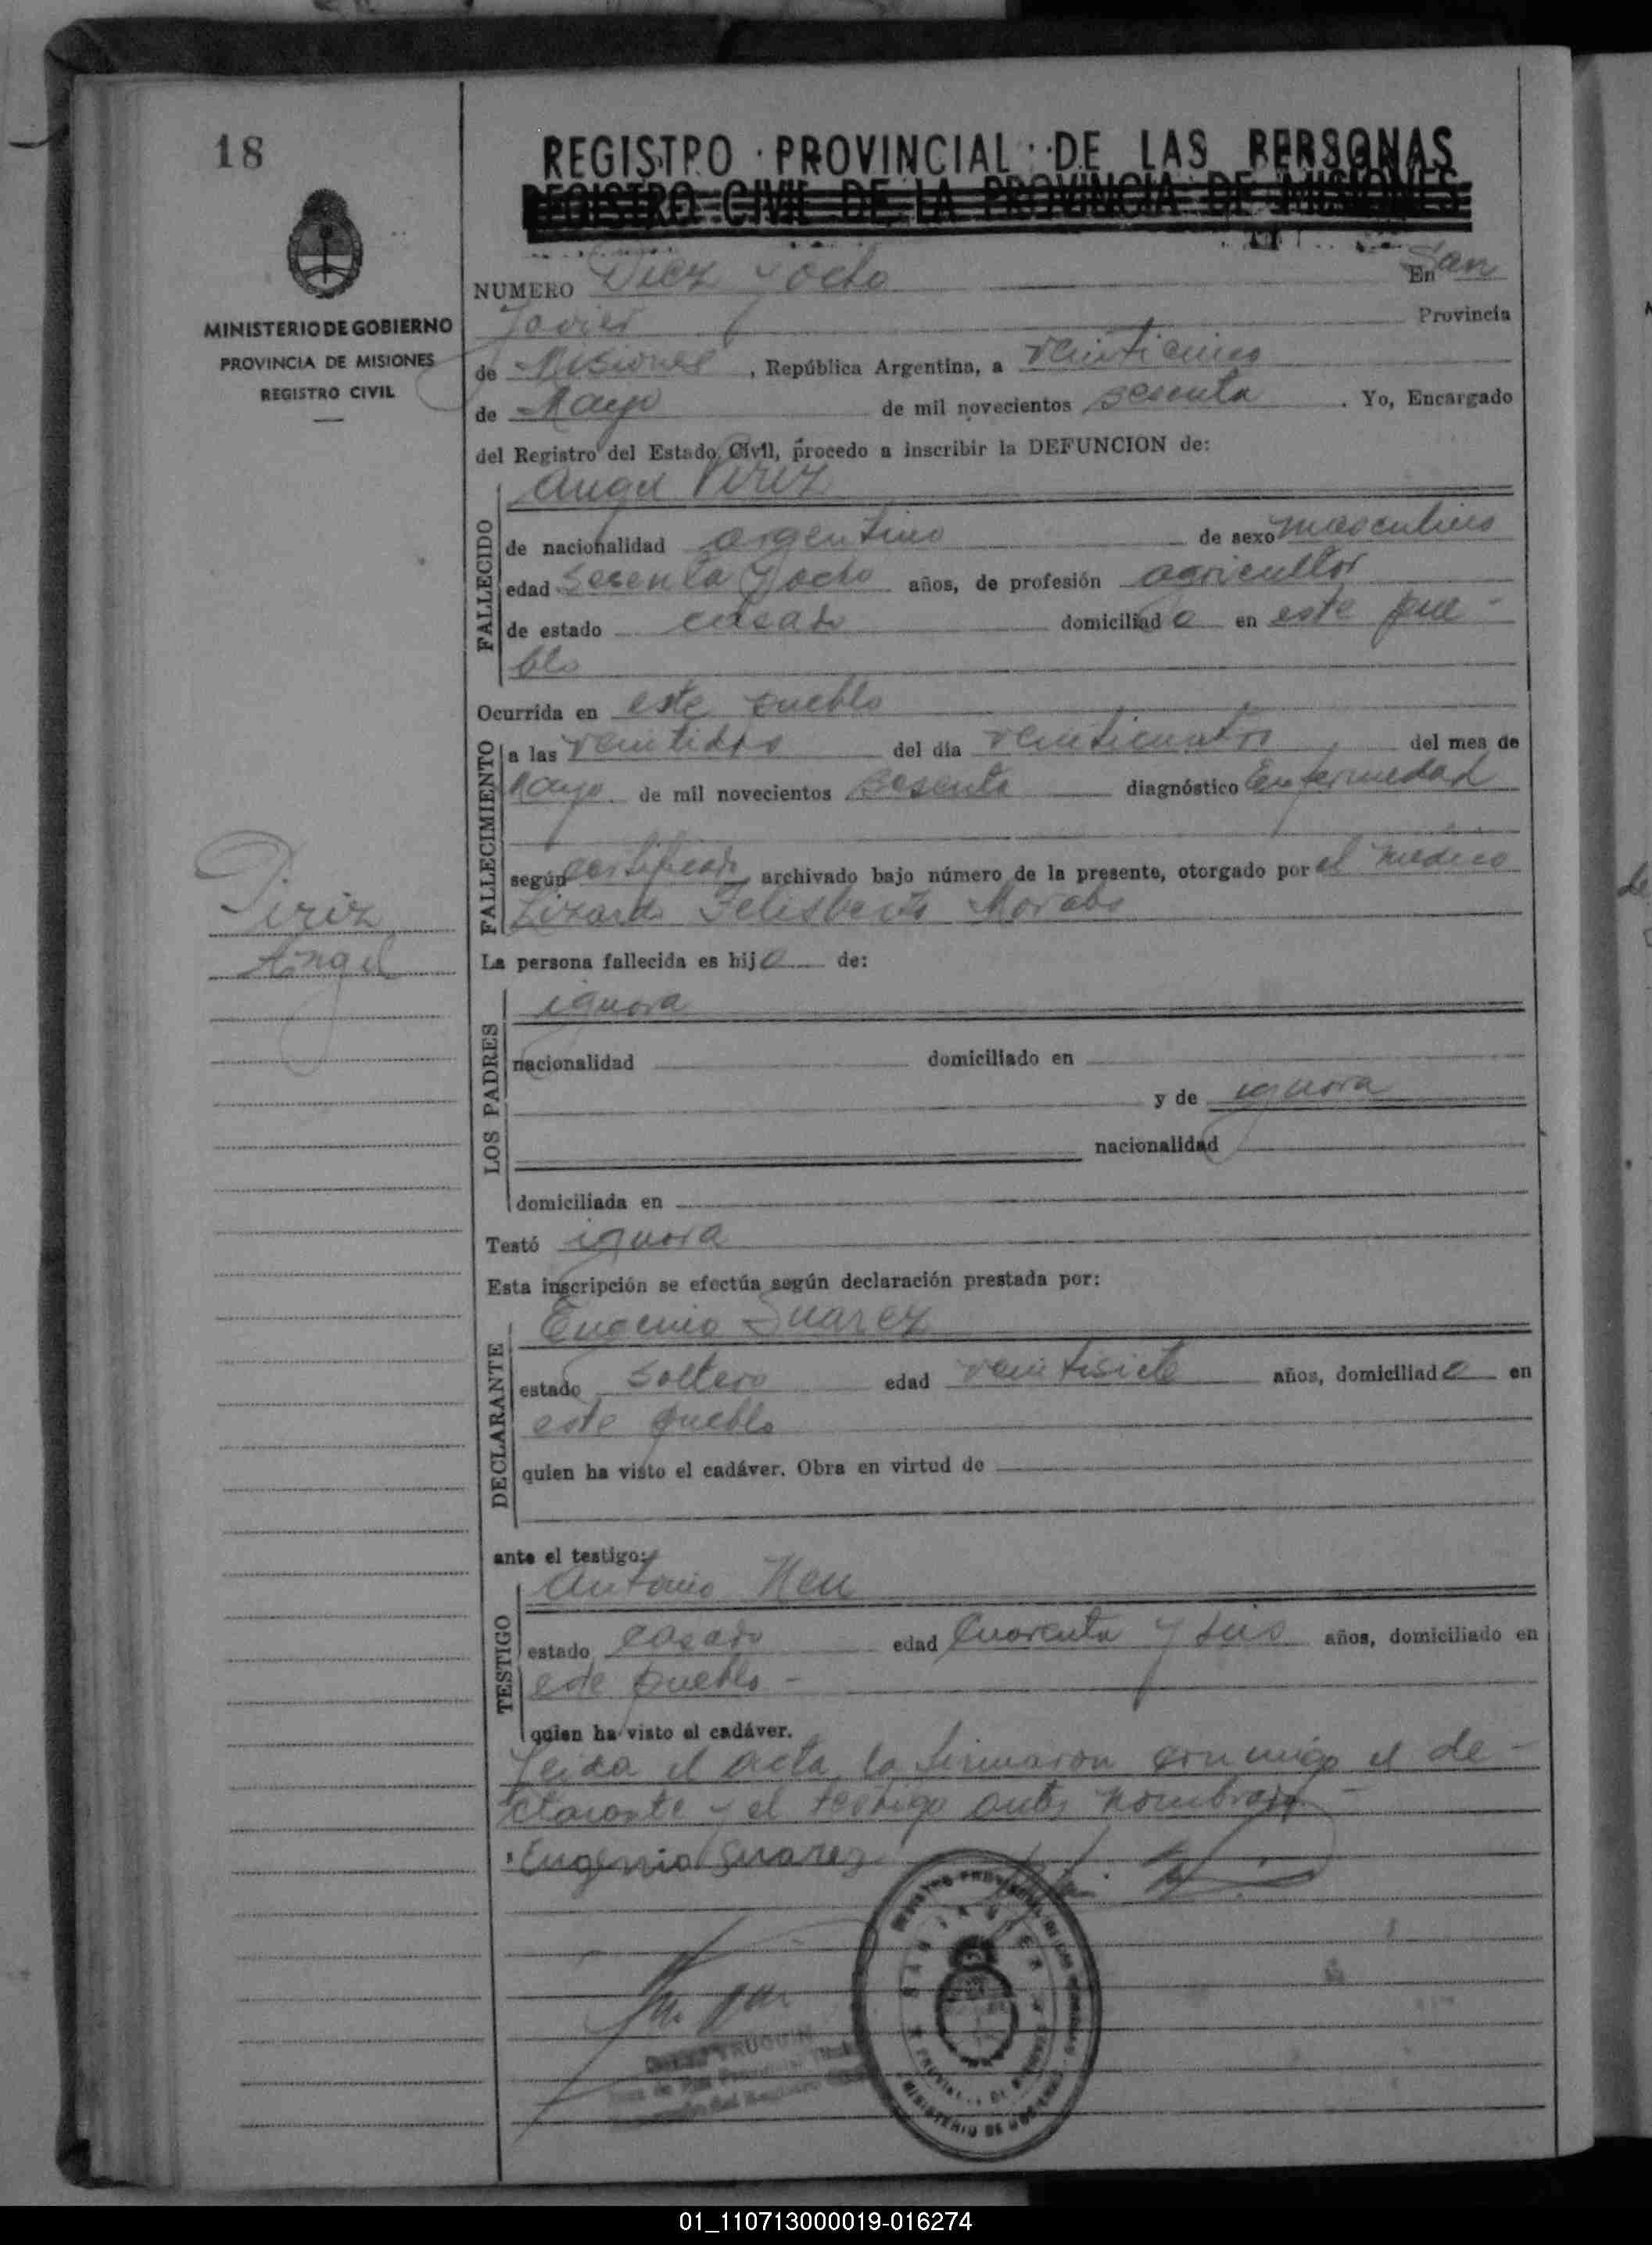 18
REGISTRO PROVINCIAL DE LAS PERSONAS
REGISTRO CIVIL DE LA PROVINCIA DE MISIONES
MINISTERIO DE GOBIERNO
PROVINCIA DE MISIONES
REGISTRO CIVIL
NUMERO Diez y ocho En San
Javier Provincia
de Misiones, República Argentina, a veinticinco
de Mayo de mil novecientos sesenta. Yo, Encargado
del Registro del Estado Civil, procedo a inscribir la DEFUNCION de:
Angel Piriz
FALLECIDO
de nacionalidad argentino de sexo masculino
edad sesenta y ocho años, de profesión agricultor
de estado casado domiciliado en este pue-
blo
Ocurrida en este pueblo
FALLECIMIENTO
a las veintidos del día veinticuatro del mes de
Mayo de mil novecientos sesenta diagnóstico Enfermedad
según certificado archivado bajo número de la presente, otorgado por el medico
Lizardo Felisberto Morabo
Piriz
Angel
La persona fallecida es hijo de:
LOS PADRES
ignora
nacionalidad domiciliado en
y de ignora
nacionalidad
domiciliada en
Testó ignora
Esta inscripción se efectúa según declaración prestada por:
DECLARANTE
Eugenio Suarez
estado soltero edad veintisiete años, domiciliado en
este pueblo
quien ha visto el cadáver. Obra en virtud de
ante el testigo:
TESTIGO
Antonio Neu
estado casado edad cuarenta y seis años, domiciliado en
este pueblo -
quien ha visto el cadáver.
Leida el acta la firmaron conmigo el de-
clarante y el testigo antes nombrado -
Eugenio Suarez
MINISTERIO DE
01_110713000019-016274